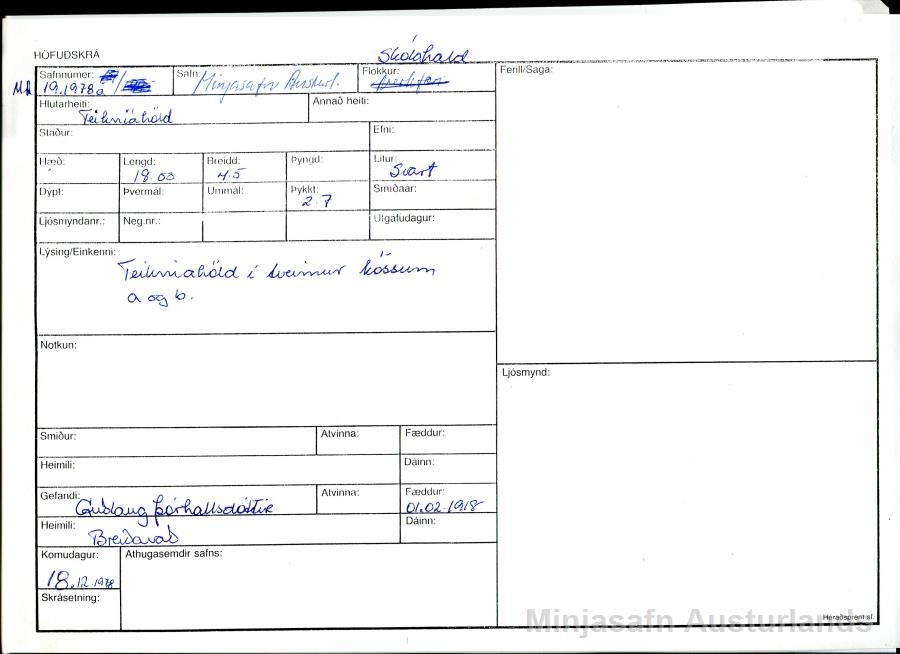 HÖFUÐSKRÁ
Skólahald
Safnnúmer:
MA 19.1978a
Safn: Minjasafn Austurl.
Flokkur:
Ferill/Saga:
Hlutarheiti: Teikniáhöld
Annað heiti:
Staður:
Efni:
Hæð:
Lengd: 18.00
Breidd: 4.5
Þyngd:
Litur: Svart
Dýpt:
Þvermál:
Ummál:
Þykkt: 2.7
Smíðaár:
Ljósmyndanr.:
Neg.nr.:
Útgáfudagur:
Lýsing/Einkenni:
Teikniahöld í tveimur kössum
a og b.
Notkun:
Ljósmynd:
Smiður:
Atvinna:
Fæddur:
Heimili:
Dáinn:
Gefandi: Guðlaug Þórhallsdóttir
Atvinna:
Fæddur: 01.02.1918
Heimili: Breiðavað
Dáinn:
Komudagur: 18.12.1978
Athugasemdir safns:
Skrásetning:
Héraðsprent sf.
Minjasafn Austurlands